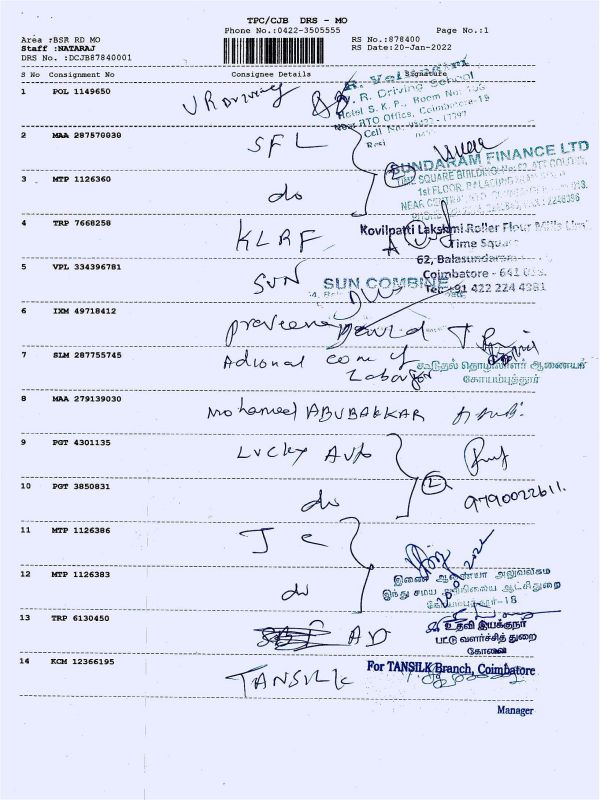 TPC/CJB DRS - MO
Phone No.:0422-3505555
Page No.:1
Area :BSR RD MO
RS No.:878400
Staff :NATARAJ
RS Date:20-Jan-2022
DRS No. :DCJB87840001
S No Consignment No Consignee Details Signature
1 POL 1149650 V R Driving
V. R. Driving School
Hotel S. K. P., Room No.
Near RTO Office, Coimbatore-18
Cell No:
2 MAA 287570030 SFL
SUNDARAM FINANCE LTD
TIME SQUARE BUILDING
1st FLOOR,
3 MTP 1126360 do
4 TRP 7668258 KLRF
Kovilpatti Lakshmi Roller Flour Mills
Time Square
62, Balasundaram
Coimbatore - 641
Tel: +91 422 224 4381
5 VPL 334396781 SUN
SUN COMBINE
6 IXM 49718412 praveena David
7 SLM 287755745 Adional com of
Labour
கூடுதல் தொழிலாளர் ஆணையர்
கோயம்புத்தூர்
8 MAA 279139030 Mohamed ABUBAKKAR
9 PGT 4301135 Lucky Auto
2
10 PGT 3850831 do
9790022611.
11 MTP 1126386 J C
12 MTP 1126383 do
இணை ஆணையர் அலுவலகம
இந்து சமய அறநிலைய ஆட்சிதுறை
கோயம்புத்தூர்-18
13 TRP 6130450 AD
உதவி இயக்குநர்
பட்டு வளர்ச்சித் துறை
கோவை
14 KCM 12366195 TANSILK
For TANSILK Branch, Coimbatore
Manager